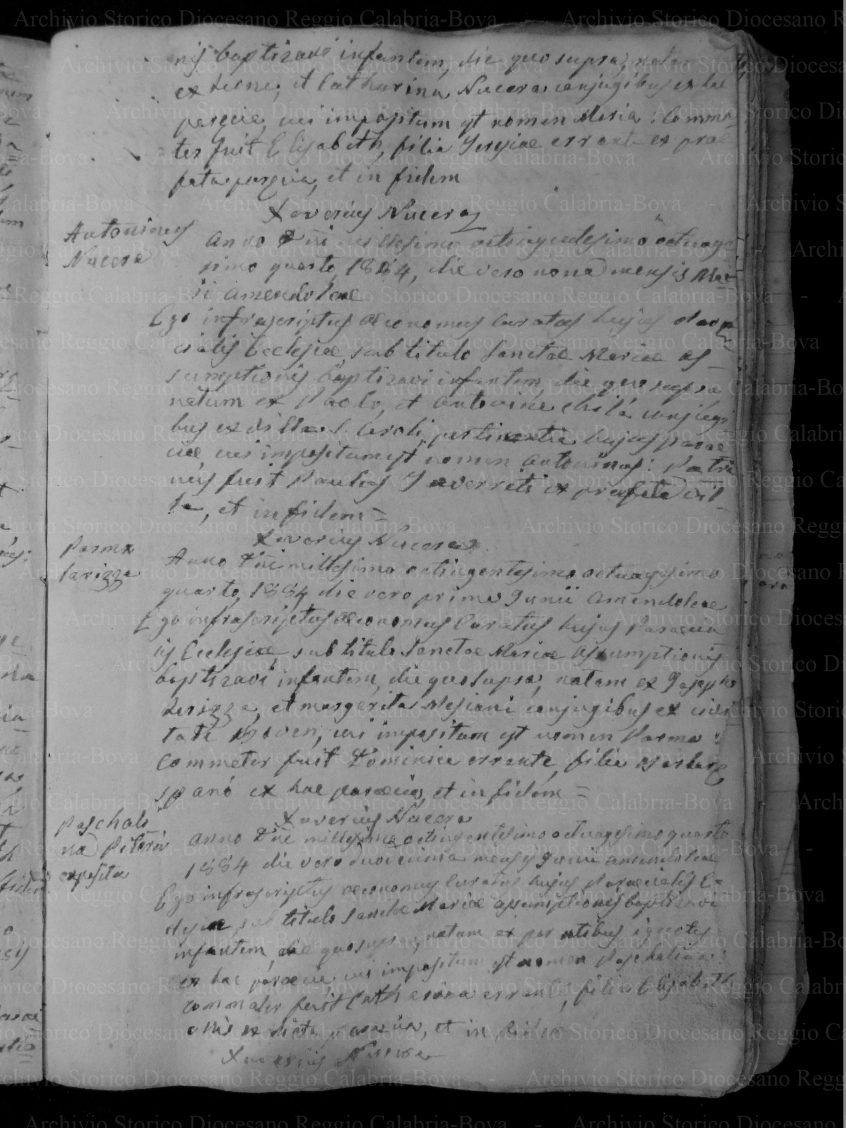 nis baptizavi infantem, die quo supra, natam
ex et Catharina Nucera conjugibus ex hac
parœcia, cui impositum est nomen Maria: Comma-
ter fuit Elisabeth, filia errante ex præ
fata parœcia, et in fidem
Xaverius Nucera
Antoninus
Nucera
Anno Dñi millesimo octingentesimo octuage
simo quarto 1884, die vero nona mensis Ma
ii Amendoleæ
Ego infrascriptus Œconomus Curatus hujus Paroe
cialis Ecclesiæ, sub titulo Sanctæ Mariæ As-
sumptionis baptizavi infantem, die quo supra
natum ex Paolo, et Antonina Chilà conjugi
bus ex villa S. Caroli, pertinentia hujus paroe
ciæ cui impositum est nomen Antoninus: Patri
nus fuit Paulus ex præfata vil-
la, et in fidem =
Xaverius Nucera
Parma
Larizza
Anno Dñi millesimo octingentesimo octuagesimo
quarto 1884 die vero prima Junii Amendoleæ
Ego infrascriptus Œconomus Curatus hujus Paroecia
lis Ecclesiæ sub titulo Sanctæ Mariæ Assumptionis
baptizavi infantem, die quo supra, natam ex Joseph
Larizza, et Margarita Mesiani conjugibus ex civi
tate Boven, cui impositum est nomen Parma:
Commater fuit Dominica errante, filia
spanò ex hac parœcia, et in fidem =
Xaverius Nucera
Paschali
na
exposita
Anno Dñi millesimo octingentesimo octuagesimo quarto
1884 die vero duodecima mensis Junii Amendoleæ
Ego infrascriptus Œconomus Curatus hujus Paroecialis Ec
clesiæ, sub titulo Sanctæ Mariæ Assumptionis baptizavi
infantem, die quo supra, natam ex parentibus ignotis
ex hac paroecia, cui impositum est nomen Paschalina:
commater fuit Catharina errante, filia Elisabeth
ex dicta paroecia, et in fidem
Xaverius Nucera